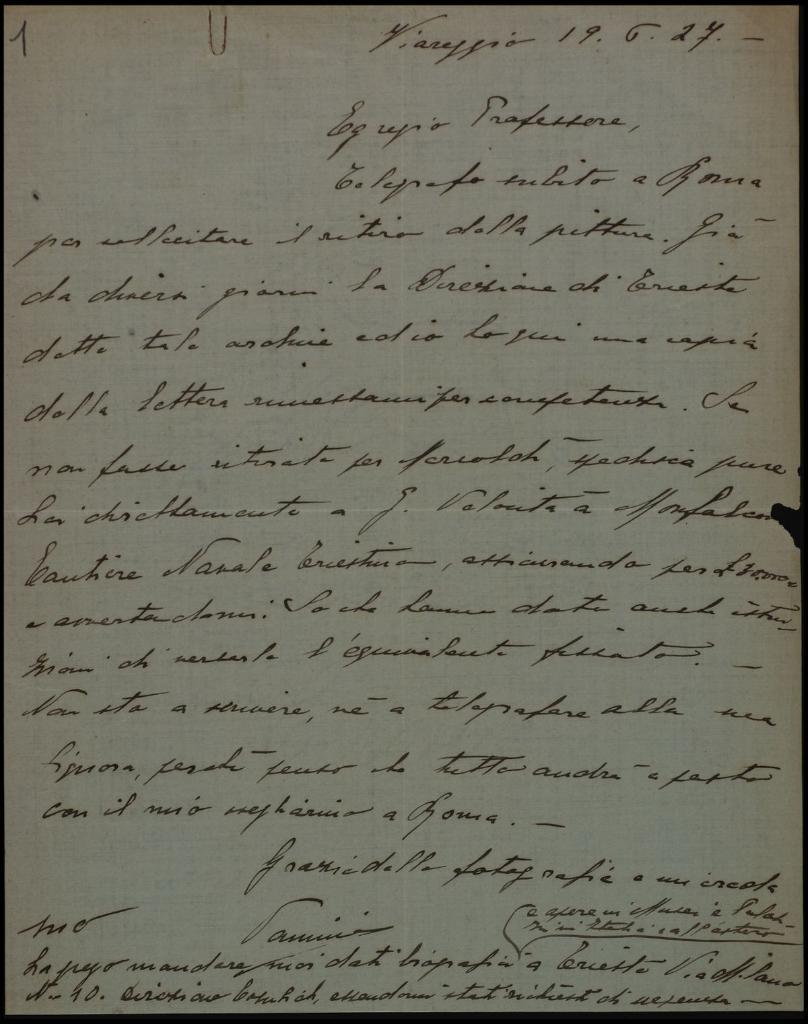 1
Viareggio 19. 6. 27. —
Egregio Professore,
Telegrafo subito a Roma
per sollecitare il ritiro della pittura. Già
da diversi giorni la Direzione di Trieste
dette tale ordine ed io ho qui una copia
della lettera rimessami per competenza. Se
non fosse ritirata per Mercoldì, spedisca pure
Lei direttamente a G. a Monfalcone
Cantiere Navale Triestino, assicurando per
e avvertendomi. So che hanno dato anche istru-
zioni di versarle l'equivalente fissato. —
Non sto a scrivere, nè a telegrafare alla sua
Signora, perchè penso che tutto andrà a posto
con il mio a Roma. —
Grazie delle fotografie e mi creda
suo
e opere in Musei e Palaz-
zi in Italia e all'estero
La prego mandare suoi dati biografici a Trieste Via Milano
No 10. Direzione Cosulich, essendomi stati richiesti di urgenza —